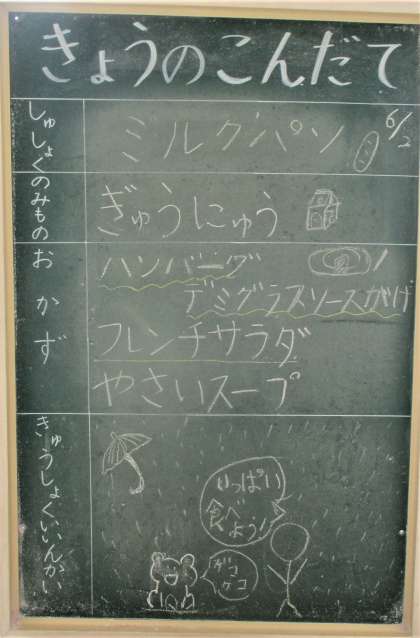 きょうのこんだて
しゅしょく
ミルクパン
6/2
のみもの
ぎゅうにゅう
おかず
ハンバーグ
デミグラスソースがけ
フレンチサラダ
やさいスープ
きゅうしょくいいんかい
いっぱい
食べ
よう!
ゲコ
ゲコ